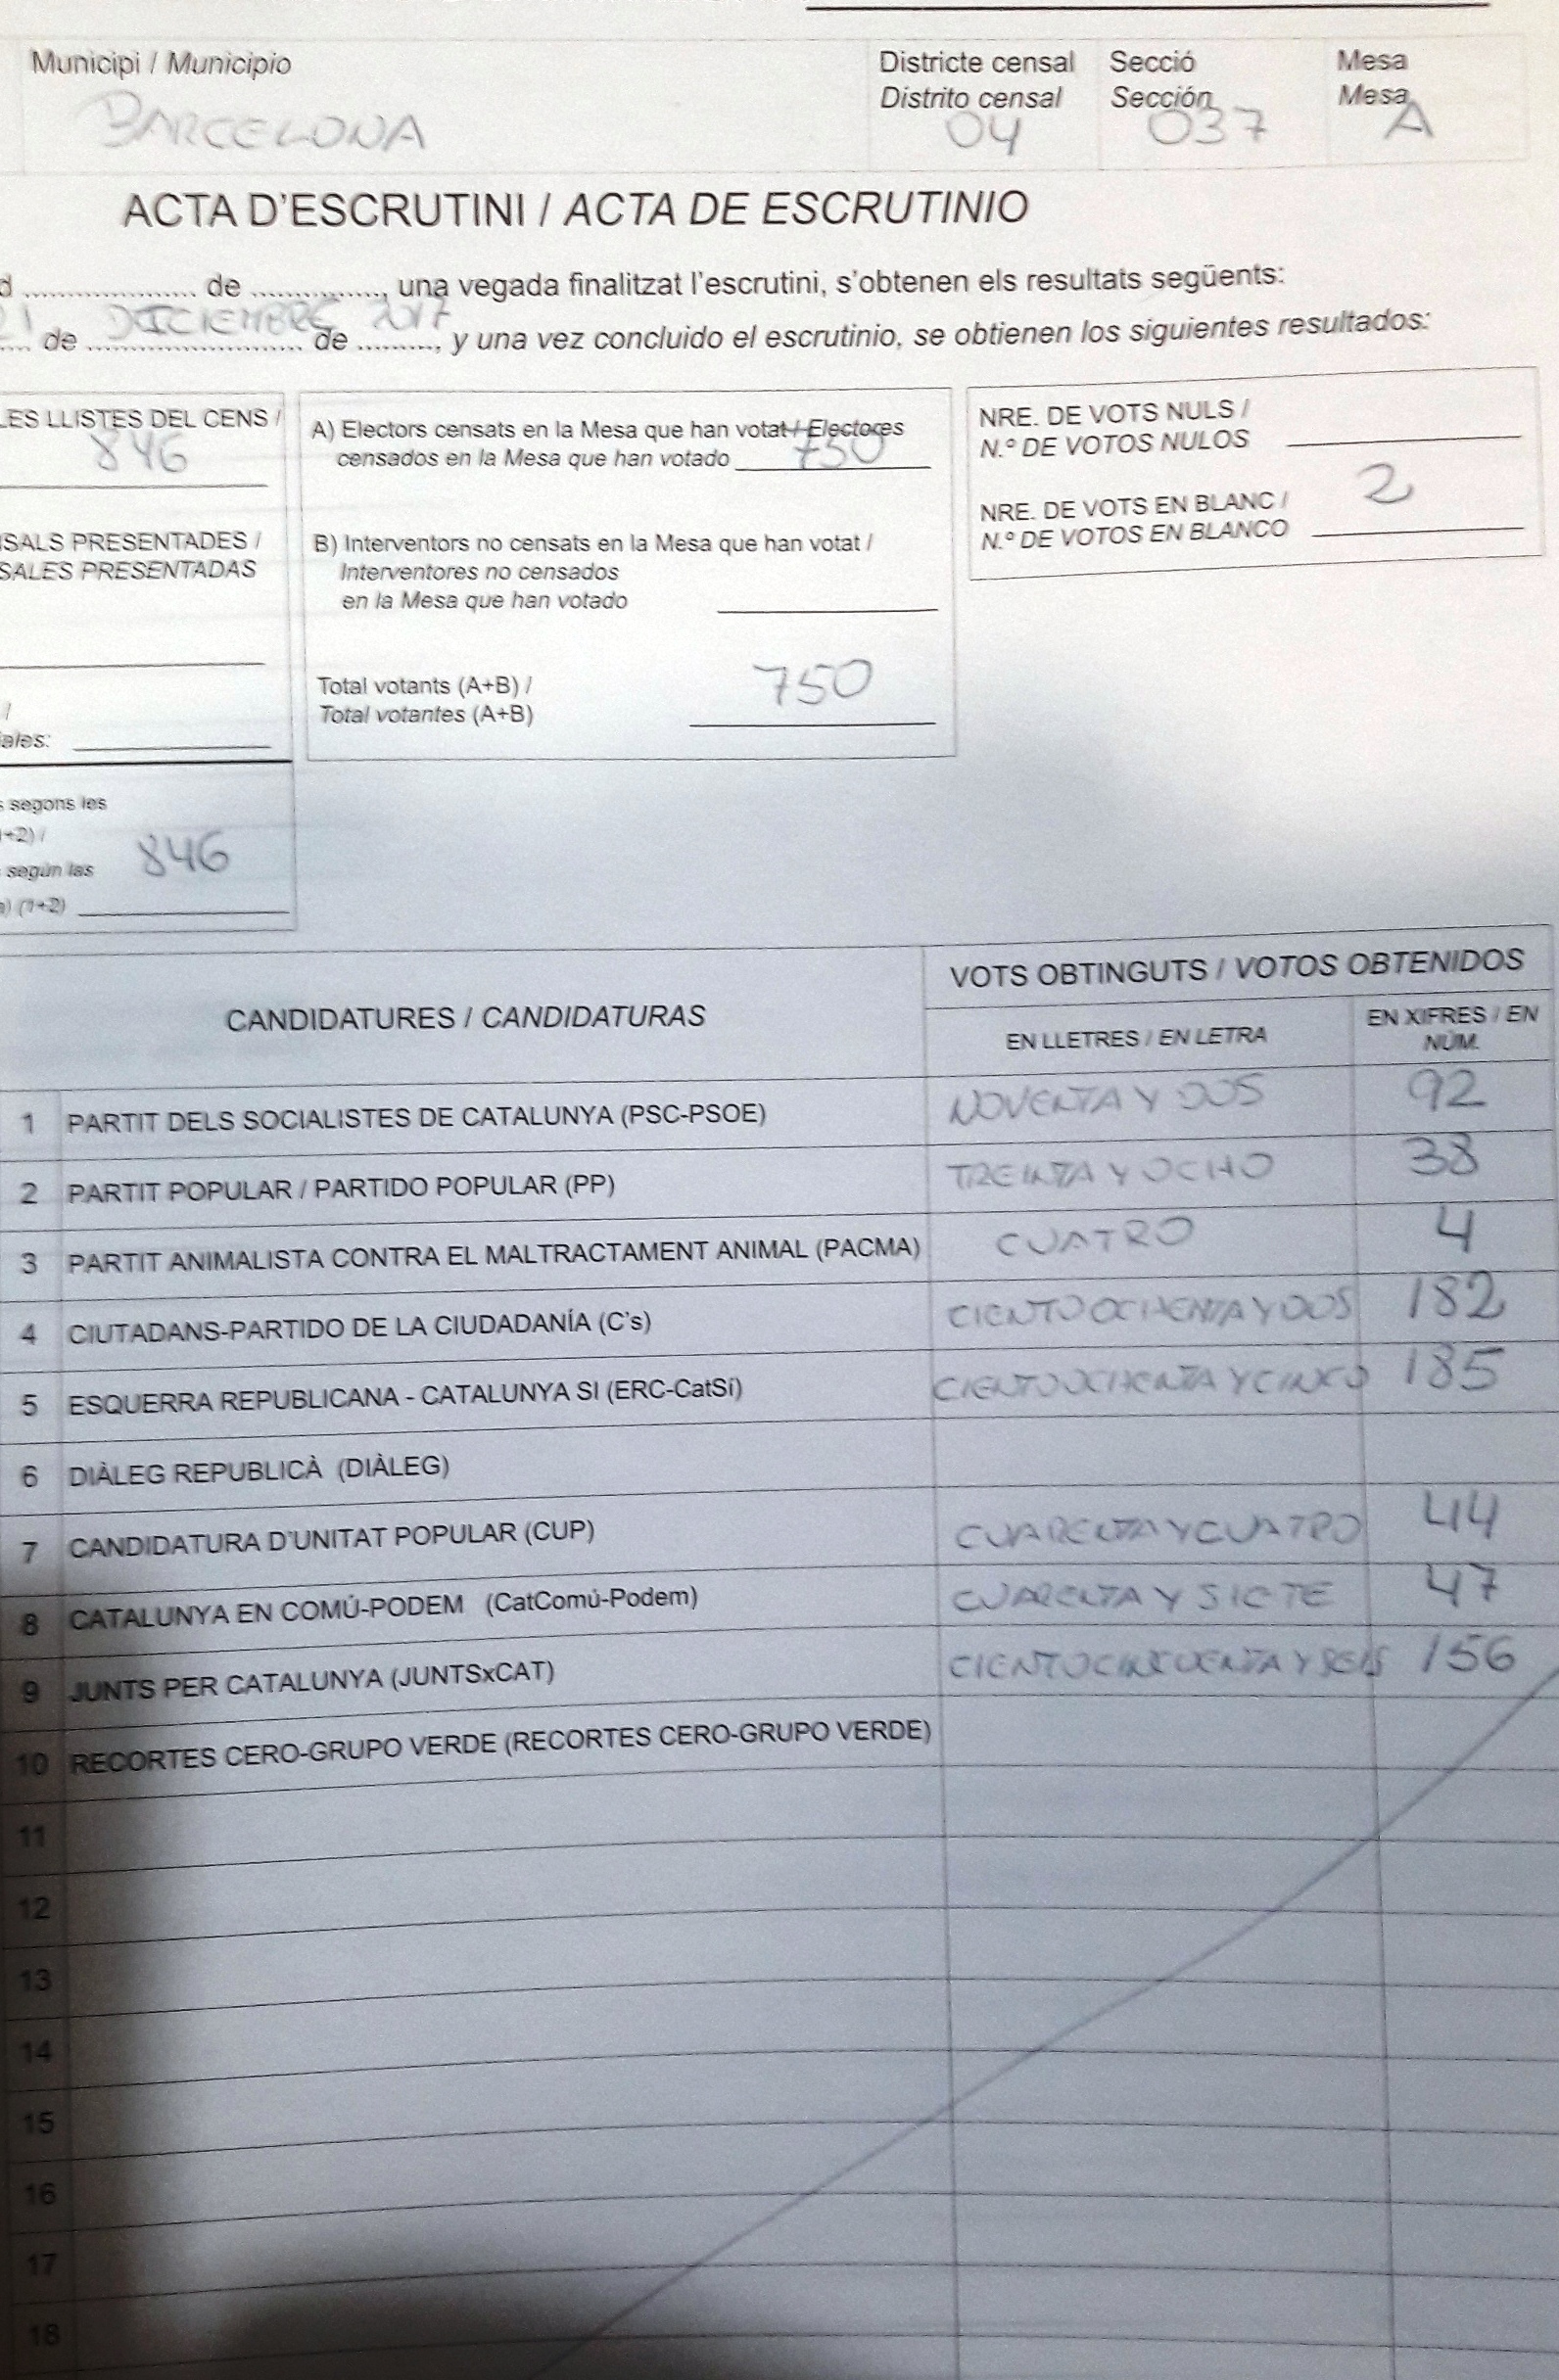 Municipi / Municipio
BARCELONA
Districte censal
Distrito censal
04
Secció
Sección
037
Mesa
Mesa
A
ACTA D'ESCRUTINI / ACTA DE ESCRUTINIO
d ..................... de ................, una vegada finalitzat l'escrutini, s'obtenen els resultats següents:
21 de DICIEMBRE de 2017, y una vez concluido el escrutinio, se obtienen los siguientes resultados:
LES LLISTES DEL CENS /
846
SALS PRESENTADES /
SALES PRESENTADAS
/
ales:
s segons les
1+2) /
según las
846
(1+2)
A) Electors censats en la Mesa que han votat / Electores
censados en la Mesa que han votado 750
B) Interventors no censats en la Mesa que han votat /
Interventores no censados
en la Mesa que han votado
Total votants (A+B) /
Total votantes (A+B) 750
NRE. DE VOTS NULS /
N.º DE VOTOS NULOS
NRE. DE VOTS EN BLANC /
N.º DE VOTOS EN BLANCO 2
CANDIDATURES / CANDIDATURAS
VOTS OBTINGUTS / VOTOS OBTENIDOS
EN LLETRES / EN LETRA
EN XIFRES / EN
NÚM.
1 PARTIT DELS SOCIALISTES DE CATALUNYA (PSC-PSOE) NOVENTA Y DOS 92
2 PARTIT POPULAR / PARTIDO POPULAR (PP) TREINTA Y OCHO 38
3 PARTIT ANIMALISTA CONTRA EL MALTRACTAMENT ANIMAL (PACMA) CUATRO 4
4 CIUTADANS-PARTIDO DE LA CIUDADANÍA (C's) CIENTO OCHENTA Y DOS 182
5 ESQUERRA REPUBLICANA - CATALUNYA SI (ERC-CatSí) CIENTO OCHENTA Y CINCO 185
6 DIÀLEG REPUBLICÀ (DIÀLEG)
7 CANDIDATURA D'UNITAT POPULAR (CUP) CUARENTA Y CUATRO 44
8 CATALUNYA EN COMÚ-PODEM (CatComú-Podem) CUARENTA Y SIETE 47
9 JUNTS PER CATALUNYA (JUNTSxCAT) CIENTO CINCUENTA Y SEIS 156
10 RECORTES CERO-GRUPO VERDE (RECORTES CERO-GRUPO VERDE)
11
12
13
14
15
16
17
18